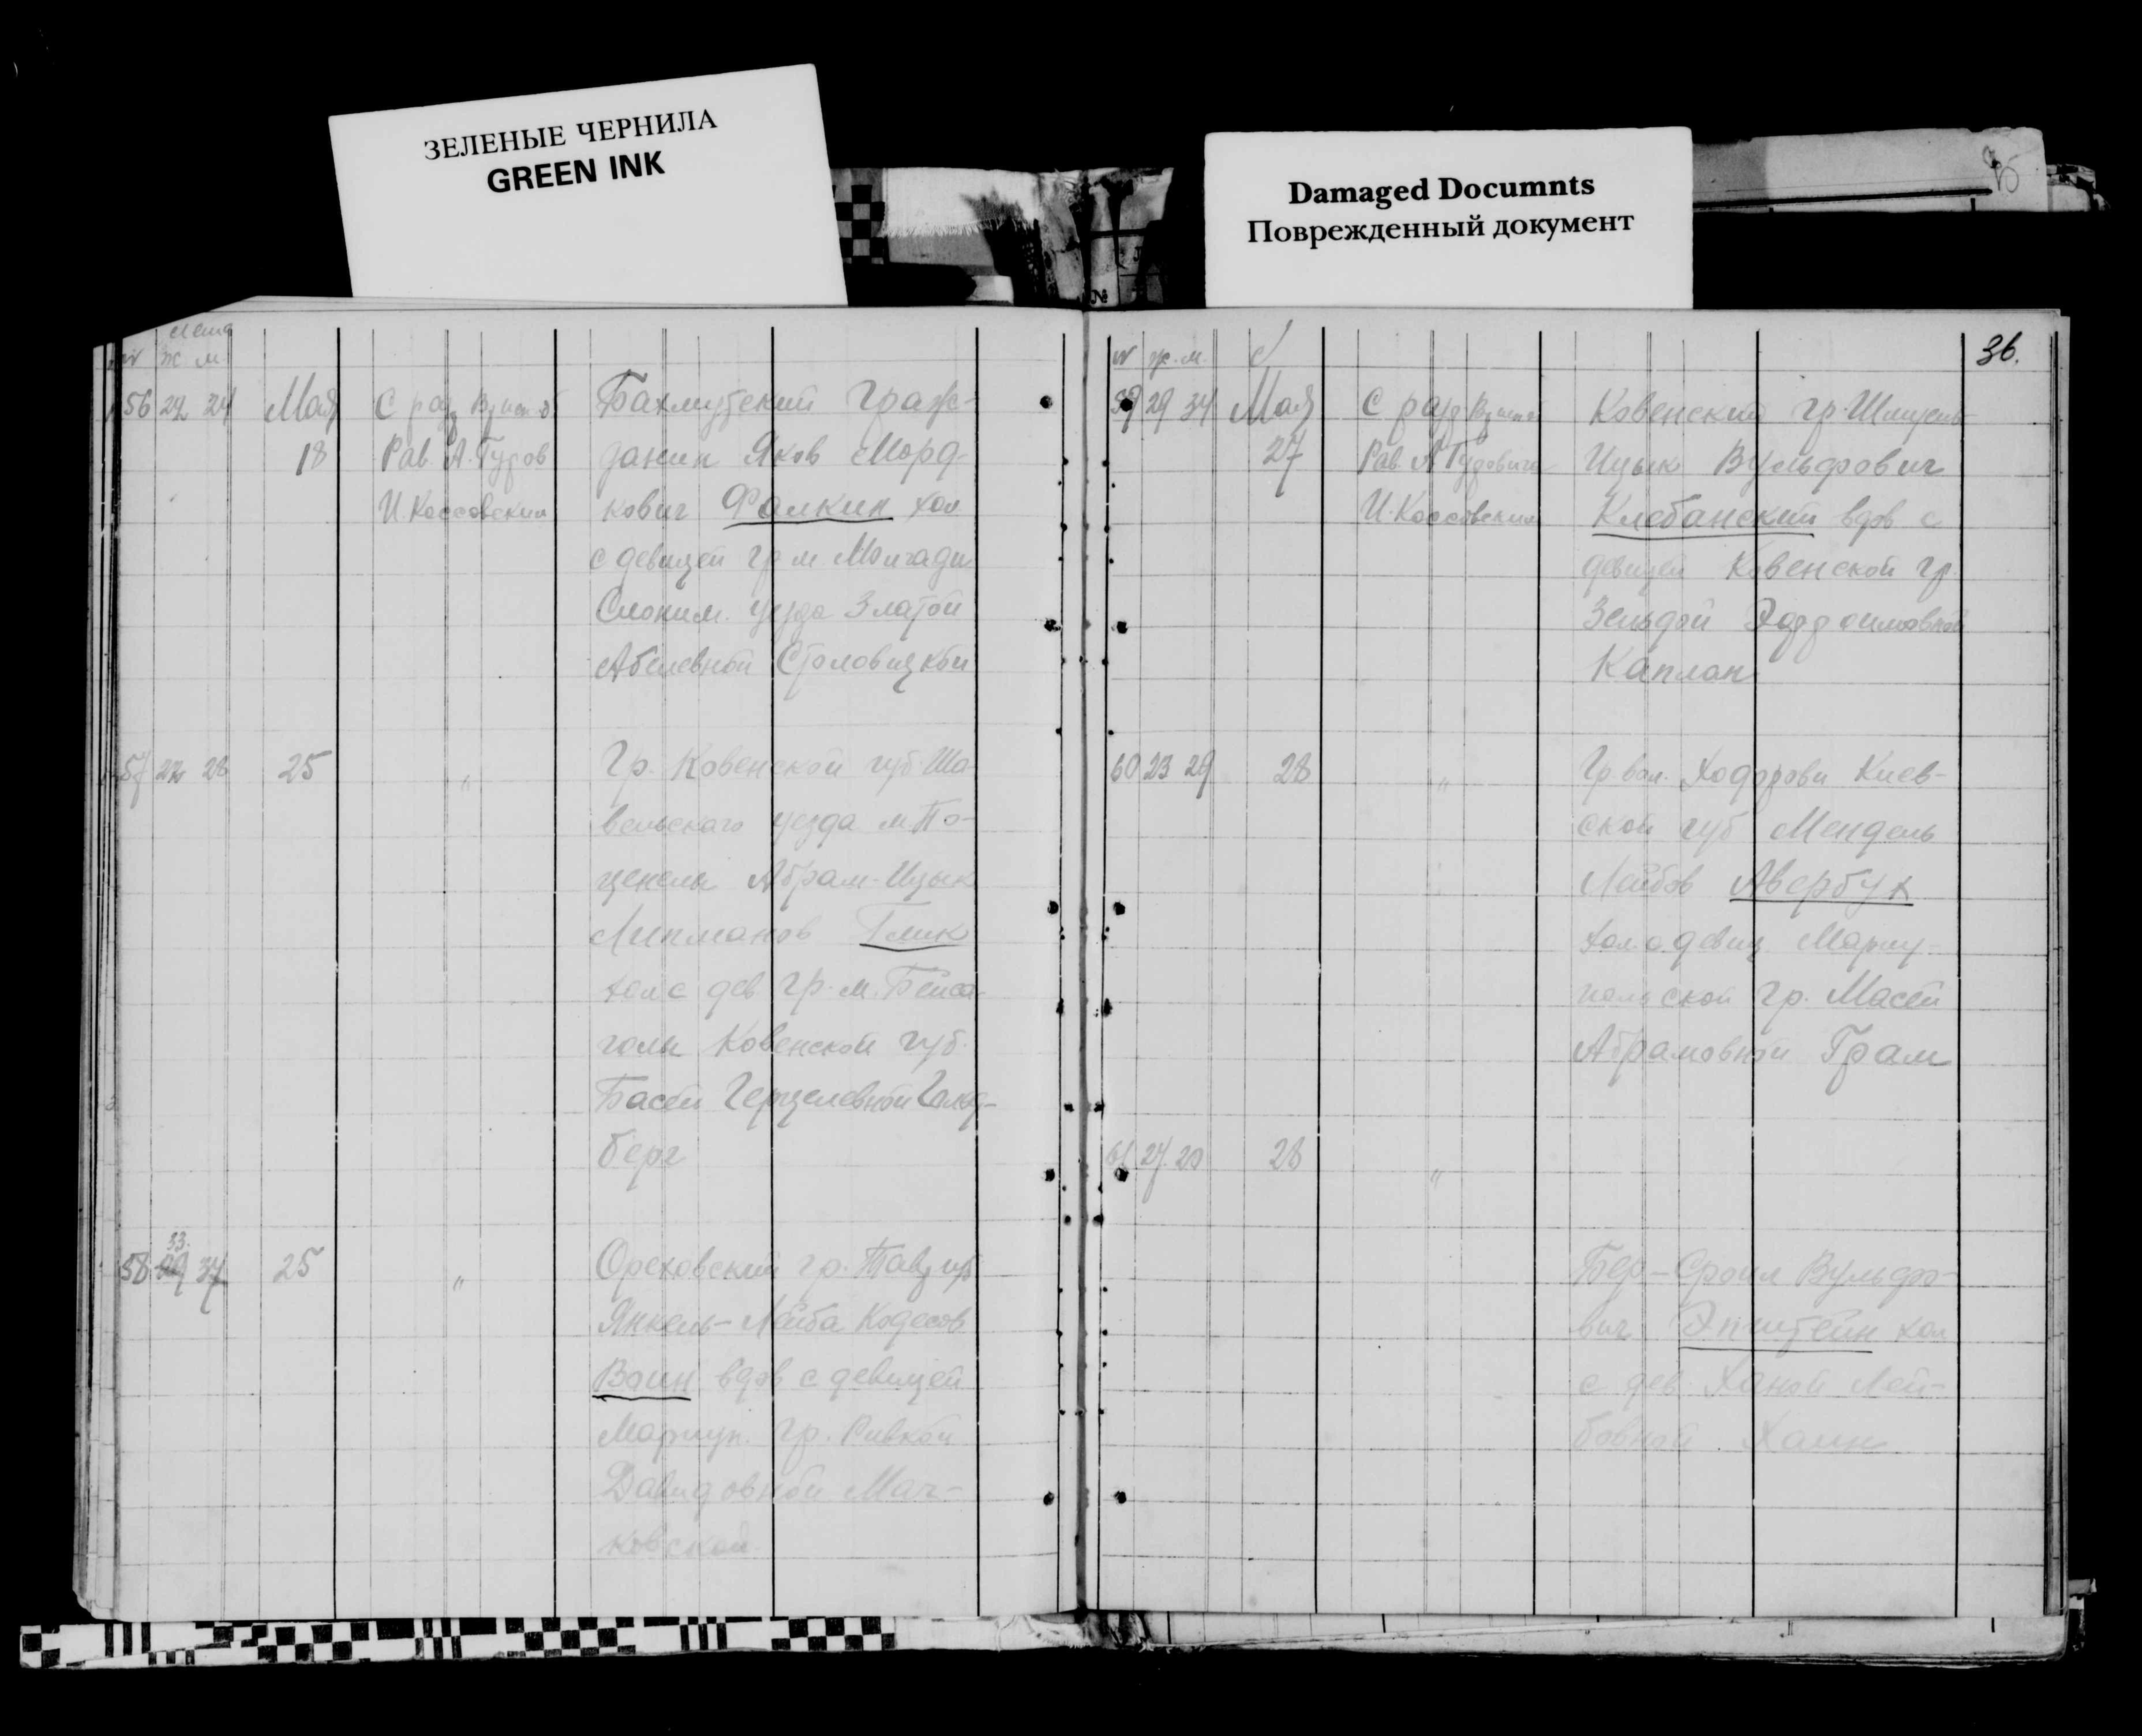 ЗЕЛЕНЫЕ ЧЕРНИЛА
GREEN INK
Damaged Documnts
Поврежденный документ
Лета
№ ж м.
56 22 24 Мая С разр
18 Рав. А. Гуров
И. Коссовский
Бахмутский граж-
данин Яков Морд-
кович Фалкин хол
с девицей гр м Молчади
Слоним. уезда Златой
Абелевной Столовицкой
57 22 28 25 "
Гр. Ковенской губ Ша-
вельского уезда м По-
Абрам-Ицык
Липманов Глик
хол с дев гр. м. Бейса-
голы Ковенской губ.
Басей Герцелевной Гольд-
берг
33.
58 37 25 "
Ореховский гр. Тавр
Янкель-Лейба
Воин вдов с девицей
Мариуп. гр. Ривкой
Давидовной Мач-
ковской.
36.
№ ж. м.
59 29 34 Мая С разр
27 Рав. А
И. Коссовский
Ковенский гр.
Ицык Вульфович
Клебанский вдов с
девицей Ковенской гр.
Зельдой
Каплан
60 23 29 28 "
Гр вол. Киев-
ской губ Мендель
Лейбов Авербух
хол. с девиц Мариу-
польской гр. Масей
Абрамовной Грам
61 28 "
Бер-Сроил Вульфо-
вич Эпштейн хол
с дев Ханой Лей-
бовной Хаин
№